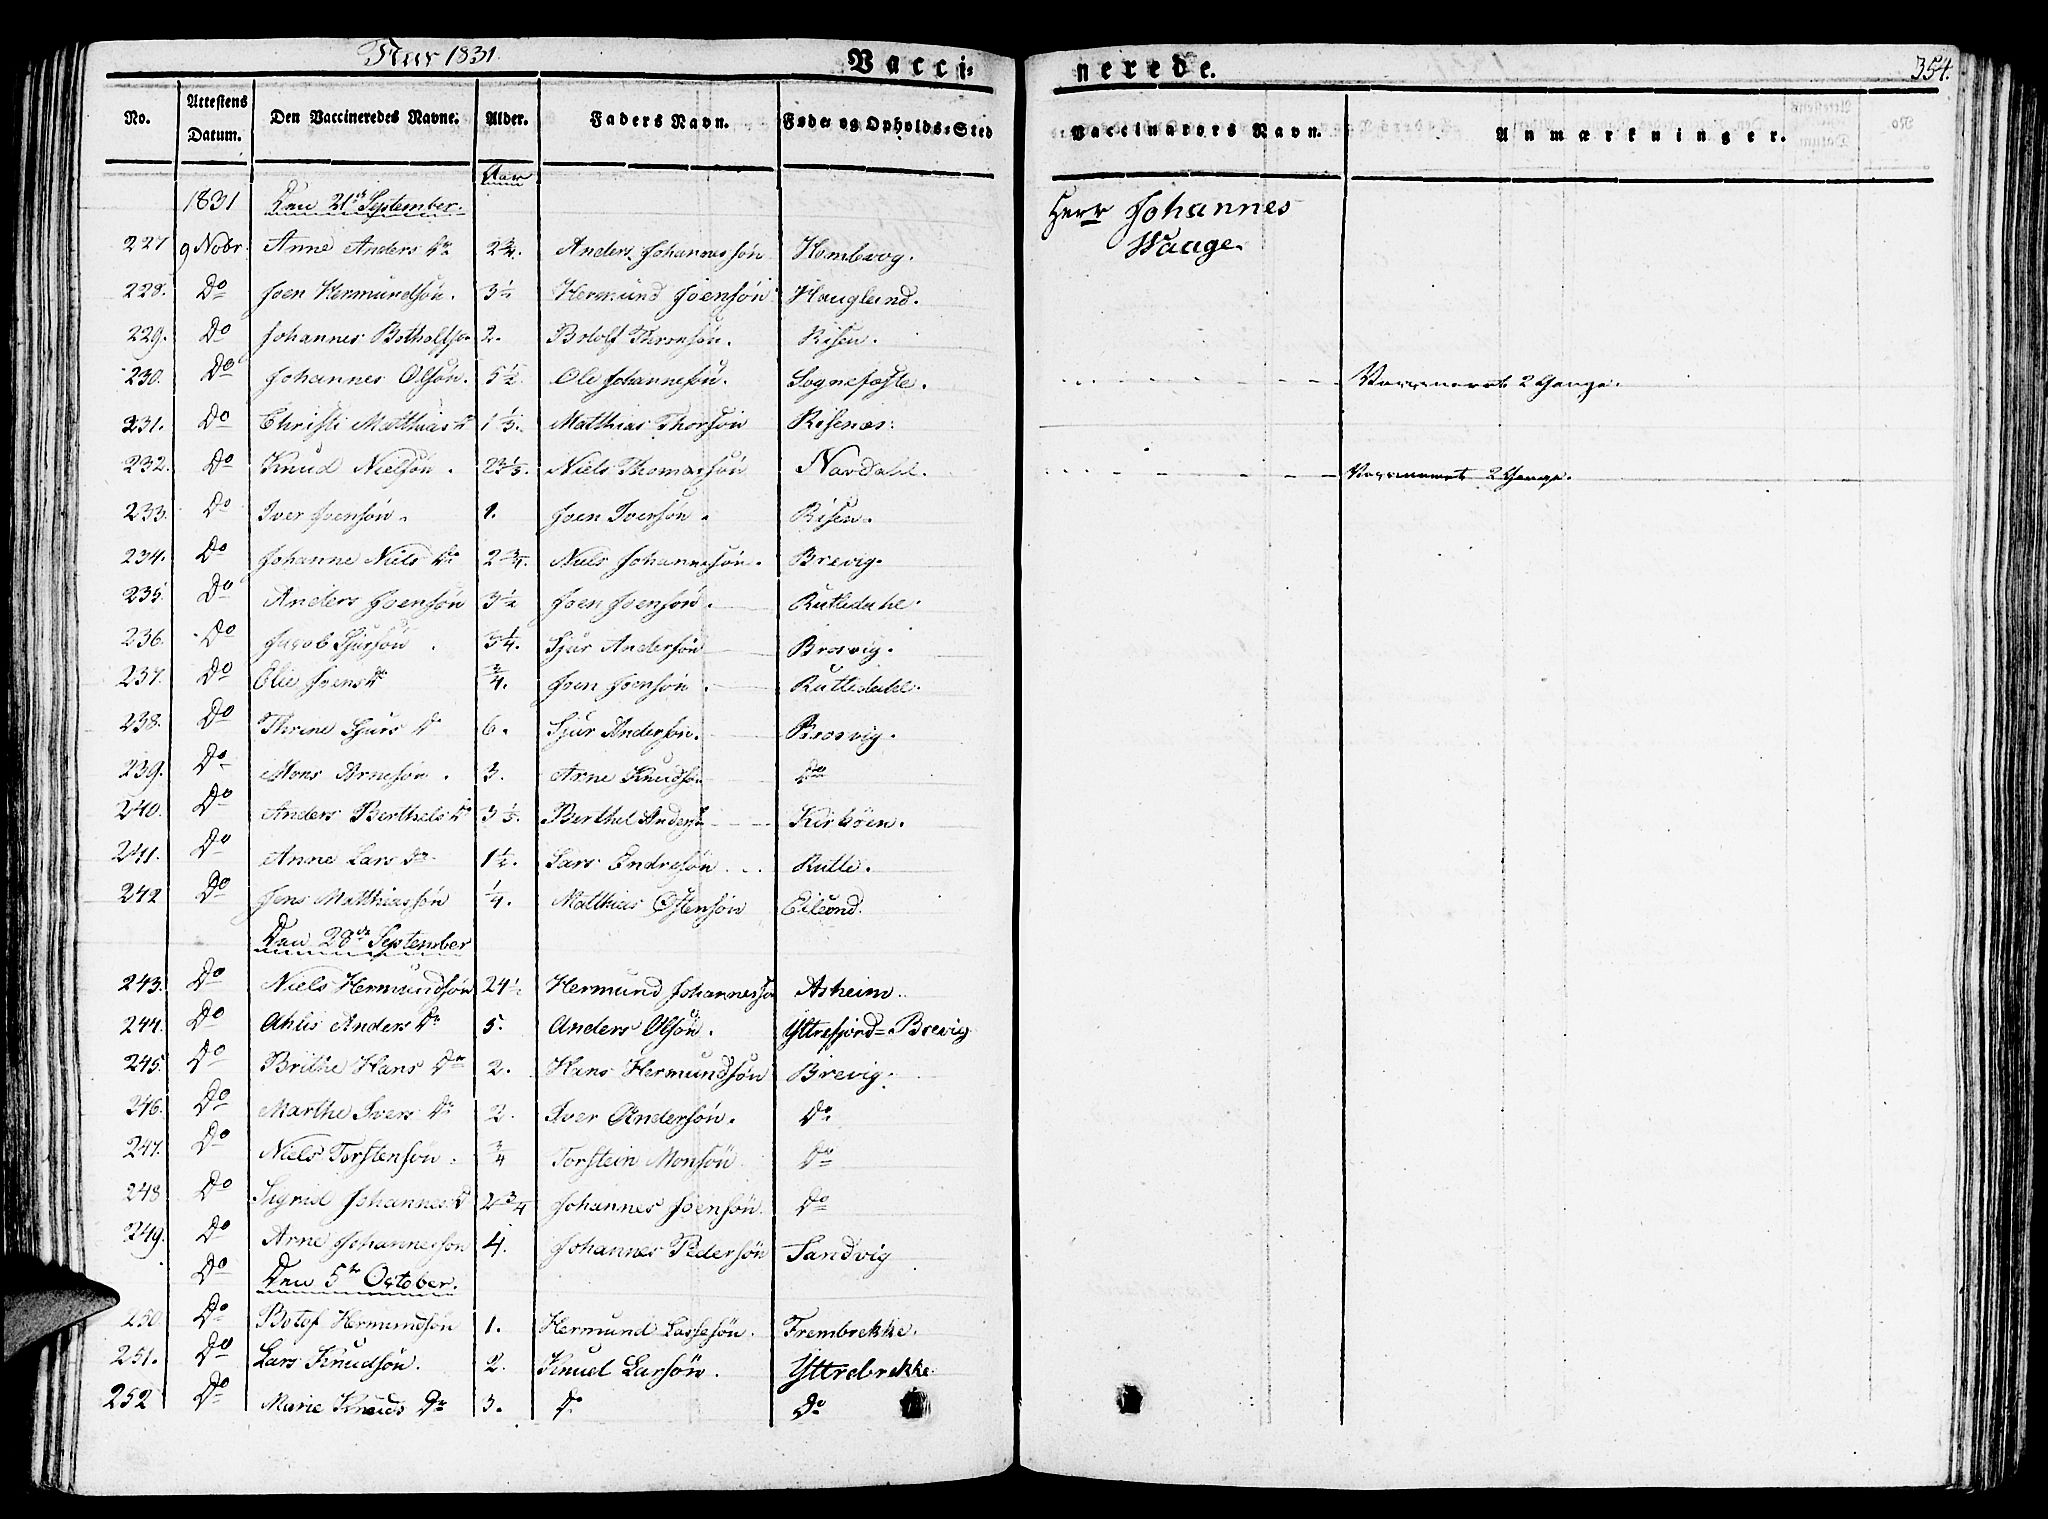 Aar 1831.
Vacci-
nerede.
354.
No.
Attestens Datum.
Den Vaccineredes Navne.
Alder.
Faders Navn.
Føde- og Opholds-Sted
Vaccinators Navn.
Anmærkninger.
Aar
1831 Den 21de September. Herr Johannes
227 9 Nobr. Anne Anders Dr 2 3/4. Anders Johannessøn Waage.
228. Do Joen Hermundsøn. 3 1/2 Hermund Joensøn Hauglund.
229. Do Johannes 2. Botolf Risen.
230. Do Johannes Olsøn. 5 1/2. Ole Johannesøn. Sognefæste. Vaccineret 2 Gange.
231. Do Christi Matthias Dr 1 1/2. Matthias Thorsøn Risenæs.
232. Do Knud Nielsøn. 23 1/2. Niels Thomassøn Navdahl. Vaccineret 2 Gange.
233. Do Iver Joensøn. 1. Joen Iversøn. Risen.
234. Do Johanne Niels Dr 2 3/4. Niels Johannesøn. Brevig.
235. Do Anders Joensøn 3 1/2 Joen Joensøn. Rutledahl.
236. Do Jacob Sjursøn. 3 1/4. Sjur Andersøn Brosvig.
237. Do Olie Joens Dr 3/4. Joen Joensøn. Rutledahl.
238. Do Thrine Sjurs Dr 6. Sjur Andersøn. Brosvig.
239. Do Mons Arnesøn. 3. Arne Knudsøn Do
240. Do Anders Berthels Dr 3 1/2. Berthel Anders Kirkøen.
241. Do Anne Lars Dr 1 1/2. Lars Endresøn Rutle.
242 Do Jens Matthiassøn 1/4. Matthias Ostensøn
Den 28de September
243. Do Niels Hermundsøn 24 1/2 Hermund Johannessø Asheim.
244. Do Ahlis Anders Dr 5. Anders Olsøn. Yttrefjord=Brevig
245. Do Brithe Hans Dr 2. Hans Hermundsøn Brevig.
246. Do Marthe Ivers Dr 2. Iver Andersøn. Do
247. Do Niels Torstensøn. 3/4 Torstein Monsøn. Do
248 Do Sigrid Johannes Dr 2 3/4 Johannes Joensøn. Do
249. Do Arne Johannesson 4. Johannes Pedersøn Sandvig
Do Den 5te October.
250. Do Botof Hermundsøn 1. Hermund Lassesøn. Frembrekke.
251. Do Lars Knudsøn. 2. Knud Larsøn. Yttrebrekke.
252 Do Marie Knuds Dr 3. Do Do